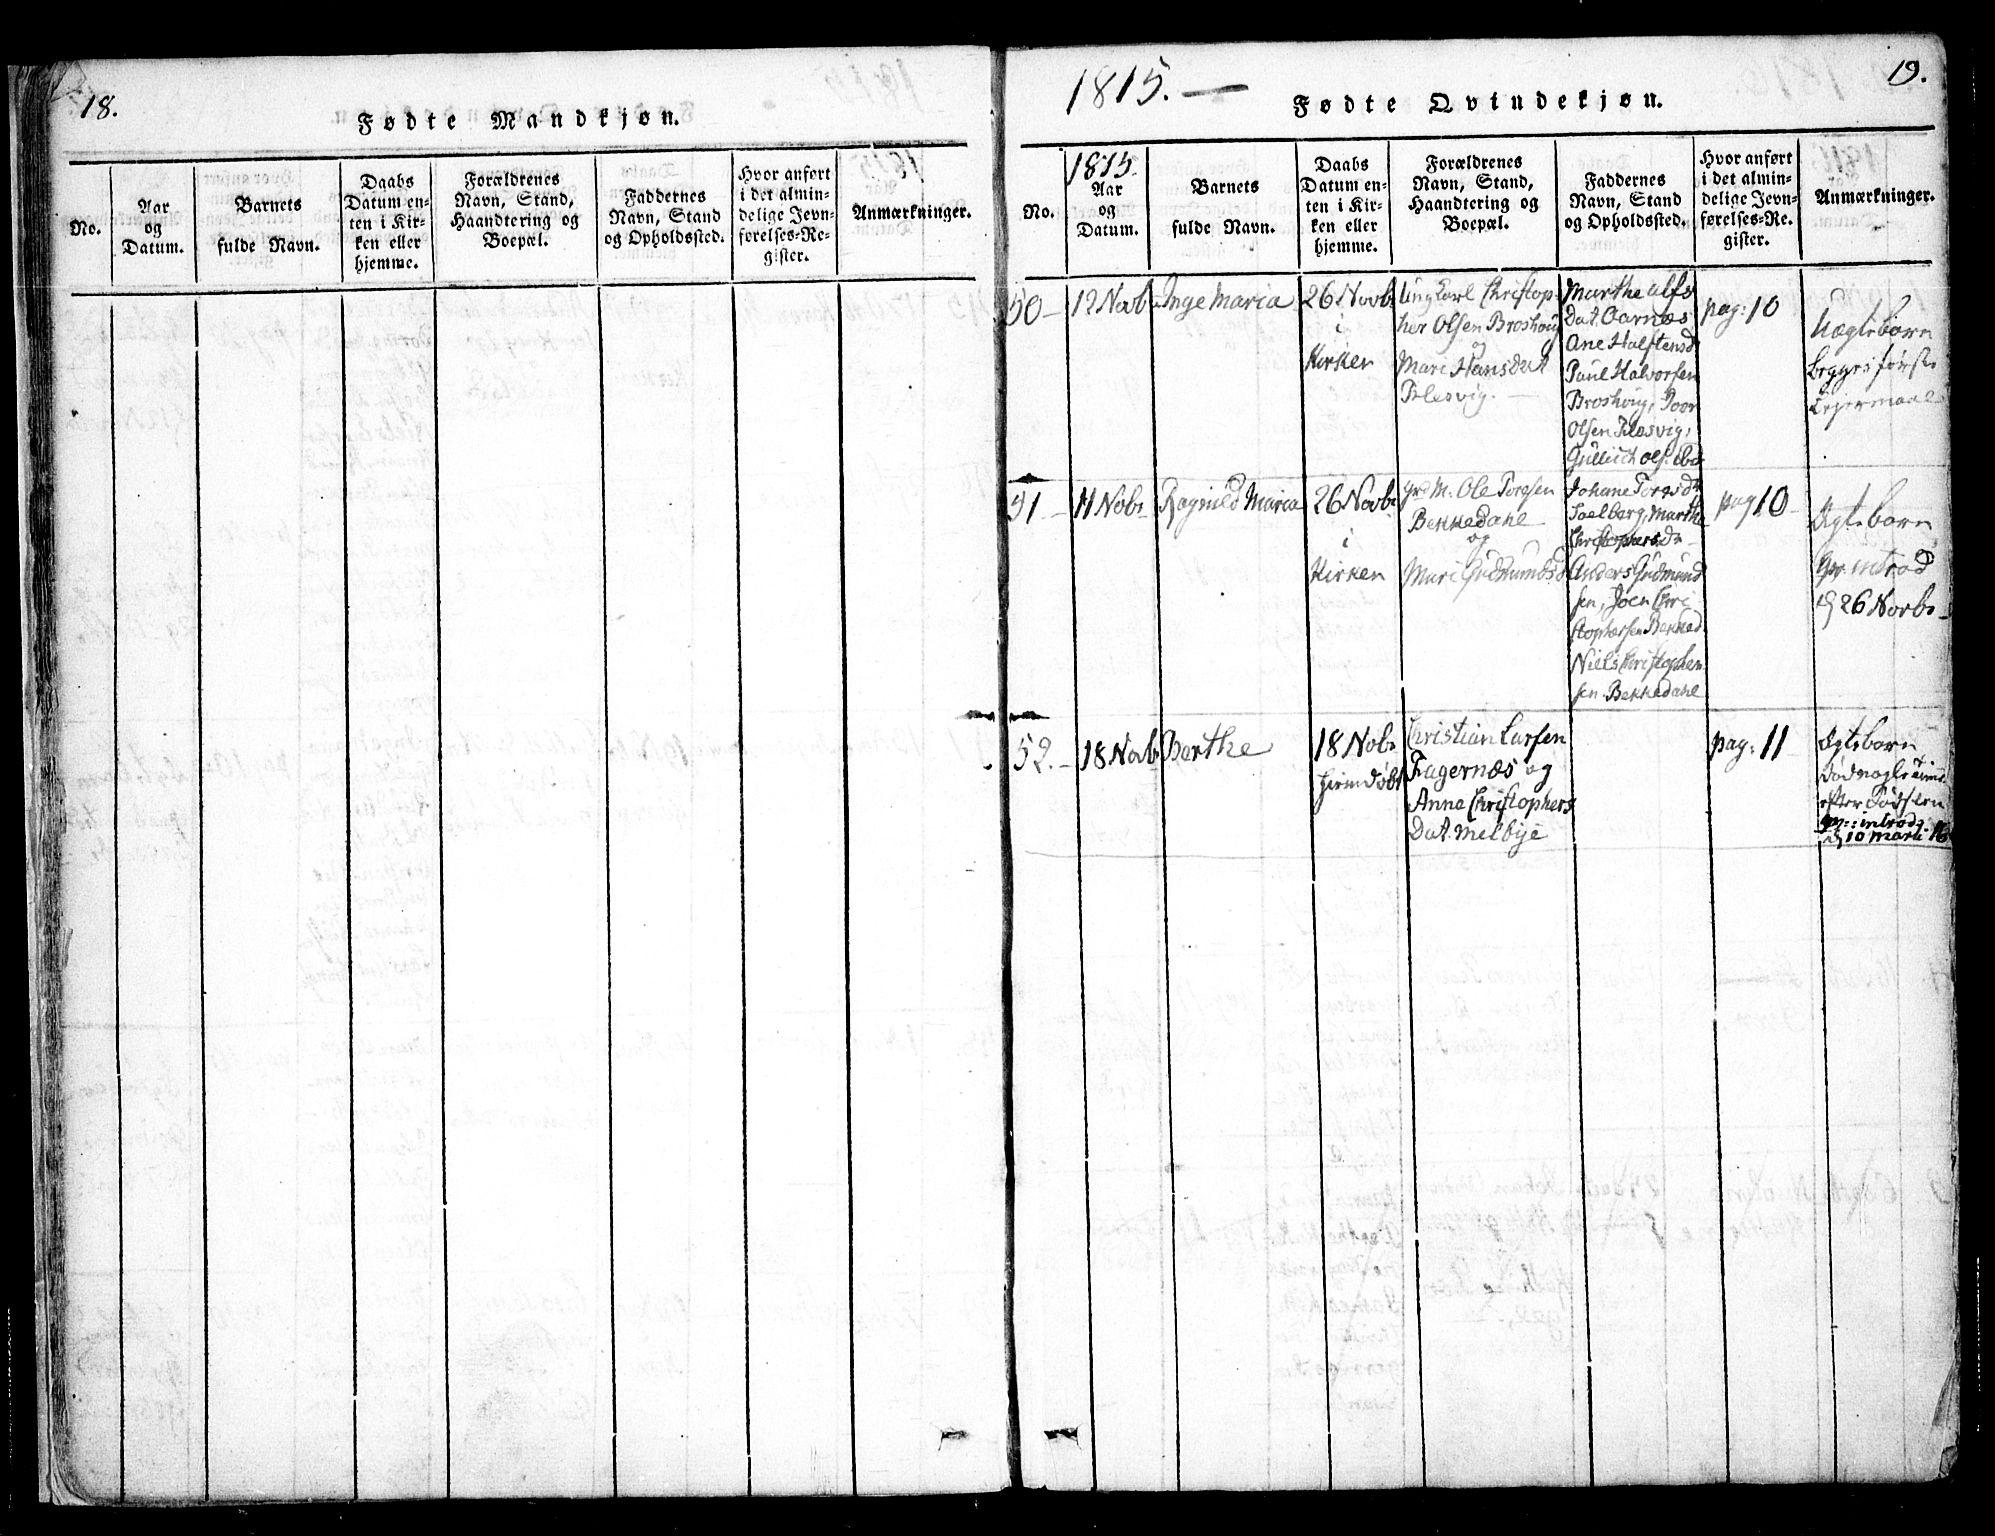 18.
Fødte Mandkjøn.
No.
Aar
og
Datum.
Barnets
fulde Navn.
Daabs
Datum en-
ten i Kir-
ken eller
hjemme.
Forældrenes
Navn, Stand,
Haandtering og
Boepæl.
Faddernes
Navn, Stand
og Opholdssted.
Hvor anført
i det almin-
delige Jevn-
førelses-Re-
gister.
Anmærkninger.
1815. —
19.
Fødte Qvindekjøn.
No.
1815.
Aar
og
Datum.
Barnets
fulde Navn.
Daabs
Datum en-
ten i Kir-
ken eller
hjemme.
Forældrenes
Navn, Stand,
Haandtering og
Boepæl.
Faddernes
Navn, Stand
og Opholdssted.
Hvor anført
i det almin-
delige Jevn-
førelses-Re-
gister.
Anmærkninger.
50 —
12 Novb.
Inge Maria
26 Novb.
i
Kirken
Ungkarl Christop-
her Olsen Broshoug
og
Mari Hansdat
Plesvig. —
Marthe Alfs
Dat. Garnæs
Ane Halftensd
Paul Halvorsen
Broshoug, Joor
Olsen Plesvig,
Gullich Ols. ibd
pag: 10
Uægtebarn
begges første
Leiermaal
51 —
11 Nobr
Ragnild Maria
26 Novb.
i
Kirken
Grd M. Ole Toresen
Bekkedahl
og
Mari Gudmundsd
Johane Toresdr
Soelberg, Marthe
Christophersdr
Anders Gudmund
sen, Joen Chri
stophersen Bekked
Niels Christopher
sen Bekkedahl
pag 10 —
Ægtebarn
introd
d 26 Novbr —
52. —
18 Novb.
Berthe
18 Nobr
hjemdøbt
Christian Larsen
Fagernæs og
Anna Christophers
Dat. Melbye
pag: 11
Ægtebarn
død nogle
efter Fødselen
introd:
d 10 Marti 16